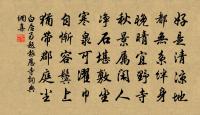 好是清涼地
都無絆繫身
晚晴宜野寺
秋景屬閑人
淨石堪敷坐
寒泉可濯巾
自慚容鬢上
猶帶郡庭塵
白居易題報恩寺詞典
網集